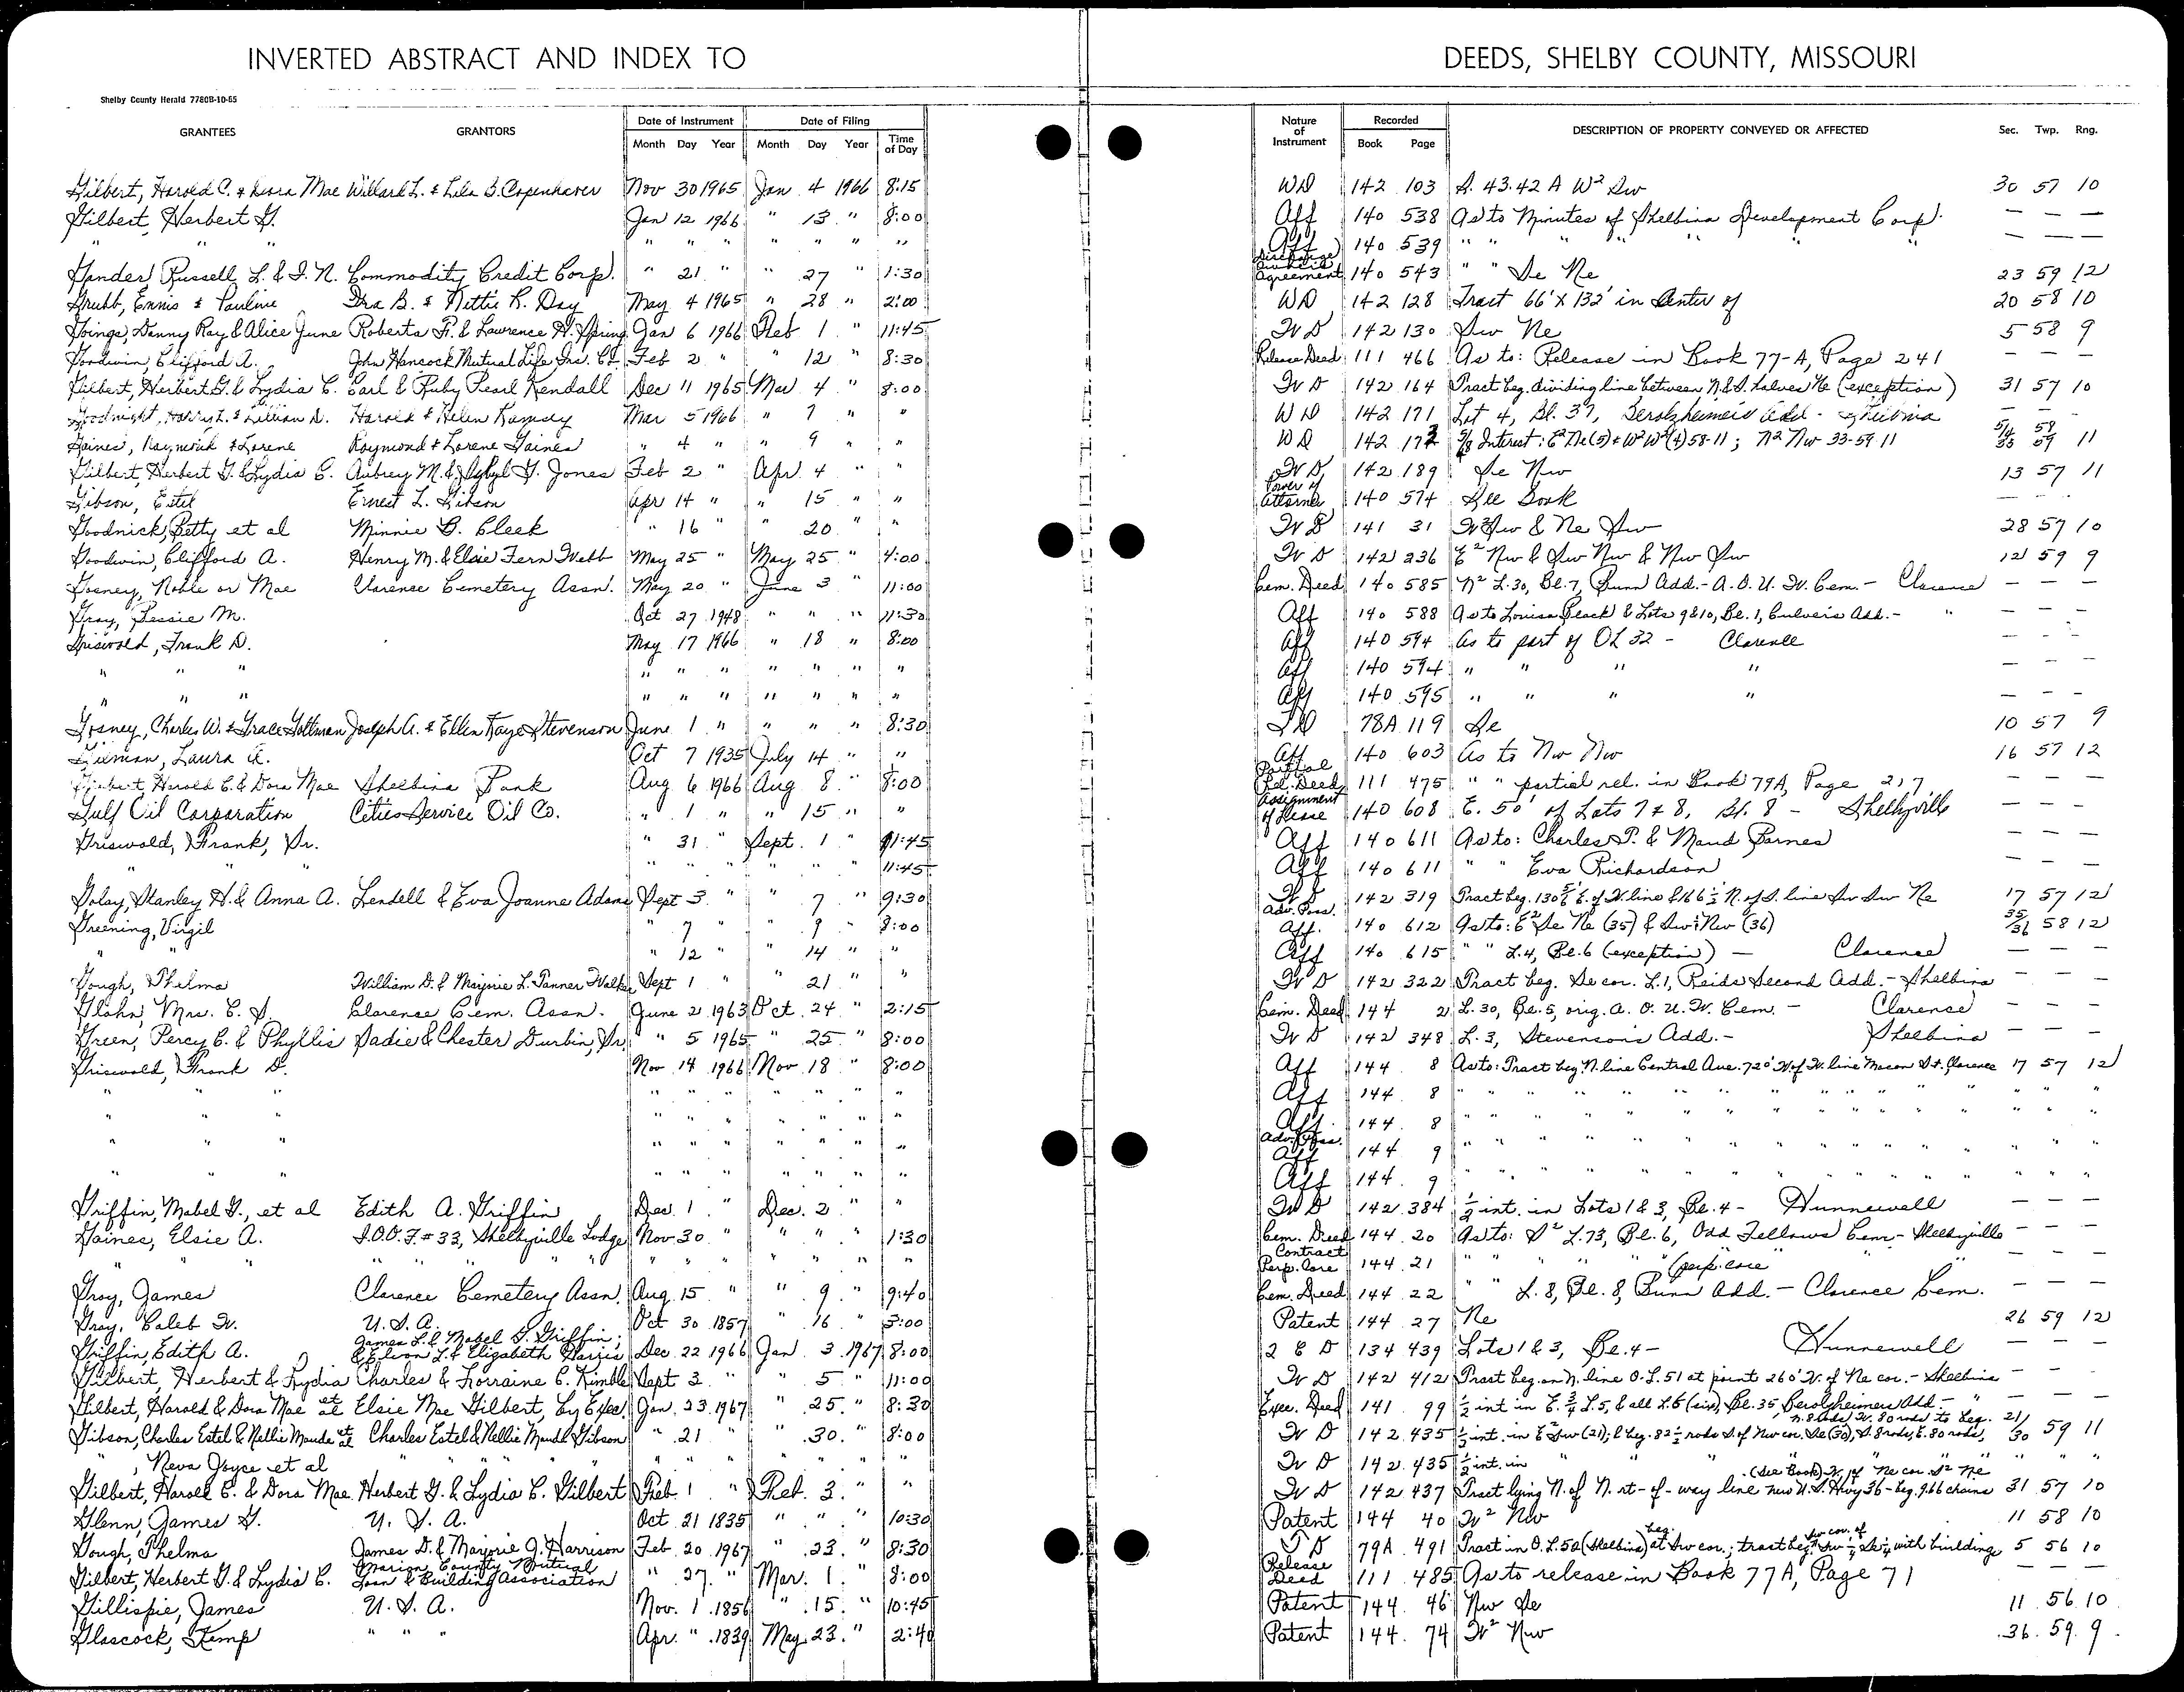 INVERTED ABSTRACT AND INDEX TO DEEDS, SHELBY COUNTY, MISSOURI
Shelby County Herald 7780B-10-65
GRANTEES GRANTORS Date of Instrument Date of Filing Nature of Instrument Recorded DESCRIPTION OF PROPERTY CONVEYED OR AFFECTED Sec. Twp. Rng.
Month Day Year Month Day Year Time of Day Book Page
Gilbert, Harold C. & Dora Mae Willard L. & Lela B. Copenhaver Nov 30 1965 Jan 4 1966 8:15 WD 142 103 S. 43.42 A W² Sw 30 57 10
Gilbert, Herbert G. Jan 12 1966 " 13 " 8:00 Aff 140 538 As to Minutes of Shelbina Development Corp. — — —
" " " " " " " " " " Aff 140 539 " " " " " " " — — —
Gander, Russell L. & I. N. Commodity Credit Corp. " 21 " " 27 " 1:30 Agreement 140 543 " " Se Ne 23 59 12
Grubb, Ennis & Pauline Ira B. & Nettie R. Day May 4 1965 " 28 " 2:00 WD 142 128 Tract 66' X 132' in Center of 20 58 10
Goings, Danny Ray & Alice June Roberta F. & Lawrence H. Spring Jan 6 1966 Feb 1 " 11:45 WD 142 130 Sw Ne 5 58 9
Goodwin, Clifford A. John Hancock Mutual Life Ins. Co. Feb 2 " " 12 " 8:30 Release Deed 111 466 As to: Release in Book 77-A, Page 241 — — —
Gilbert, Herbert G. & Lydia C. Earl & Ruby Pearl Kendall Dec 11 1965 Mar 4 " 8:00 WD 142 164 Tract beg. dividing line between N. & S. halves Ne (exception) 31 57 10
Goodnight, Harry L. & Lillian D. Harold & Helen Ramsey Mar 5 1966 " 7 " " WD 142 171 Lot 4, Bl. 37, Berolzheimer's Add - Shelbina — —
Gaines, Raymond & Lorene Raymond & Lorene Gaines " 4 " " 9 " " WD 142 172 Interest: E² Ne (5) & W² W² (4) 58-11; N² Nw 33-59-11 5/4 33 58 59 11
Gilbert, Herbert G. & Lydia C. Aubrey M. & Sybyl G. Jones Feb 2 " Apr. 4 " " WD 142 189 Se Nw 13 57 11
Gibson, Estel Ernest L. Gibson Apr 14 " " 15 " " Power of Attorney 140 574 See Book — — —
Goodnick, Betty et al Minnie B. Cleek " 16 " " 20 " WD 141 31 W² Sw & Ne Sw 28 57 10
Goodwin, Clifford A. Henry M. & Elsie Fern Webb May 25 " May 25 " 4:00 WD 142 236 E² Nw & Sw Nw & Nw Sw 12 59 9
Gosney, Noble or Mae Clarence Cemetery Assn. May 20 " June 3 " 11:00 Cem. Deed 140 585 N² L.30, Bl.7, Bunn Add.- A.O.U.W. Cem.- Clarence — — —
Gray, Jessie M. Oct 27 1948 " " " 11:30 Aff 140 588 As to Louisa Black & Lots 9&10, Bl. 1, Culver's Add.- " — — —
Griswold, Frank D. May 17 1966 " 18 " 8:00 Aff 140 594 As to part of OL 32 - Clarence — — —
" " " " " " " " " " Aff 140 594 " " " " — — —
" " " " " " " " " " Aff 140 595 " " " " — — —
Gosney, Charles W. & Grace Goltman Joseph A. & Ellen Kaye Stevenson June 1 " " " " 8:30 TD 78A 119 Se 10 57 9
Gilman, Laura A. Oct 7 1935 July 14 " " Aff 140 603 As to Nw Nw 16 57 12
Gilbert, Harold C. & Dora Mae Shelbina Bank Aug 6 1966 Aug 8 " 8:00 Partial Rel. Deed 111 475 " " partial rel. in Book 79A, Page 217 — — —
Gulf Oil Corporation Cities Service Oil Co. " 1 " " 15 " " Assignment of Lease 140 608 E. 50' of Lots 7 & 8, Bl. 8 - Shelbyville — — —
Griswold, Frank, Sr. " 31 " Sept. 1 " 11:45 Aff 140 611 As to: Charles P. & Maud Barnes — — —
" " " " " " " " 11:45 Aff 140 611 " " Eva Richardson — — —
Golay, Stanley H. & Anna A. Lendell & Eva Joanne Adams Sept 3 " " 7 " 9:30 WD 142 319 Tract beg. 130 E. of W. line & 166½' N. of S. line Sw Sw Ne 17 57 12
Greening, Virgil " 7 " " 9 " 8:00 Adv. Poss. Aff. 140 612 As to: E² Se Ne (35) & Sw Nw (36) 35/36 58 12
" " " 12 " " 14 " " Aff 140 615 " " L.4, Bl.6 (exception) — Clarence — — —
Gough, Thelma William D. & Marjorie L. Tanner Walker Sept 1 " " 21 " " WD 142 322 Tract beg. Se cor. L.1, Reids Second Add.- Shelbina — — —
Glahn, Mrs. C. S. Clarence Cem. Assn. June 2 1963 Oct. 24 " 2:15 Cem. Deed 144 2 L.30, Bl.5, orig. A.O.U.W. Cem. - Clarence — — —
Green, Percy C. & Phyllis Sadie & Chester Durbin, Sr. " 5 1965 " 25 " 8:00 WD 142 348 L.3, Stevenson's Add.- Shelbina — — —
Griswold, Frank D. Nov. 14 1966 Nov. 18 " 8:00 Aff 144 8 As to: Tract beg. N. line Central Ave. 720' W. of W. line Macon St. Clarence 17 57 12
" " " " " " " " " " Aff 144 8 " " " " " " " " " " " " "
" " " " " " " " " " Aff. 144 8 " " " " " " " " " " " " "
" " " " " " " " " " Adv. Poss. Aff 144 9 " " " " " " " " " " " " "
" " " " " " " " " " Aff 144 9 " " " " " " " " " " " " "
Griffin, Mabel G., et al Edith A. Griffin Dec. 1 " Dec. 2 " " WD 142 384 ½ int. in Lots 1 & 3, Bl.4 - Hunnewell — — —
Gaines, Elsie A. I.O.O.F. #33, Shelbyville Lodge Nov. 30 " " " " 1:30 Cem. Deed 144 20 As to: S² L.73, Bl.6, Odd Fellows Cem- Shelbyville — — —
" " " " " " " " " " " " " Contract Perp. Care 144 21 " " " (perp. care) " "
Gray, James Clarence Cemetery Assn. Aug. 15 " " 9 " 9:40 Cem. Deed 144 22 " " L.8, Bl.8, Bunn Add. - Clarence Cem. — — —
Gray, Caleb W. U.S.A. Oct 30 1857 " 16 " 3:00 Patent 144 27 Ne 26 59 12
Griffin, Edith A. James L. & Mabel G. Griffin; & Edwon L. & Elizabeth Harris Dec. 22 1966 Jan 3 1967 8:00 2 C D 134 439 Lots 1 & 3, Bl.4 - Hunnewell — — —
Gilbert, Herbert & Lydia Charles & Lorraine C. Kimble Sept 3 " " 5 " 11:00 WD 142 412 Tract beg. on N. line O.L.51 at point 260' W. of Ne cor.- Shelbina — —
Gilbert, Harold & Dora Mae et al Elsie Mae Gilbert, by Exec. Jan. 23 1967 " 25 " 8:30 Exec. Deed 141 99 ½ int in E. ¾ L.5, & all L.6 (six), Bl. 35, Berolzheimers Add.- " —
Gibson, Charles Estel & Nellie Maude et al Charles Estel & Nellie Maude Gibson " 21 " " 30 " 8:00 WD 142 435 ½ int. in E² Sw (21); & beg. 82½ rods S. of Nw cor. Se (30), S. 8 rods, E. 80 rods, N. 8 rods, W. 80 rods to beg. 21/30 59 11
" , Neva Joyce et al " " " " " " " " " WD 142 435 ½ int. in " " " " "
Gilbert, Harold C. & Dora Mae Herbert G. & Lydia C. Gilbert Feb. 1 " Feb. 3 " " WD 142 437 Tract lying N. of N. rt-of-way line new U.S. Hwy 36 - beg. 9.66 chains (See Book) W. of Ne cor. S² Ne 31 57 10
Glenn, James G. U.S.A. Oct. 21 1835 " " " 10:30 Patent 144 40 W² Nw 11 58 10
Gough, Thelma James D. & Marjorie J. Harrison Feb. 20 1967 " 23 " 8:30 TD 79A 491 Tract in O.L.50 (Shelbina) beg. at Sw cor.; tract beg. Sw cor. of Sw ¼ Se ¼ with buildings 5 56 10
Gilbert, Herbert G. & Lydia C. Marion County Mutual Loan & Building Association " 27 " Mar. 1 " 8:00 Release Deed 111 485 As to release in Book 77A, Page 71 — — —
Gillispie, James U.S.A. Nov. 1 1856 " 15 " 10:45 Patent 144 46 Nw Se 11 56 10
Glascock, Kemp " " " Apr. " 1839 May 23 " 2:40 Patent 144 74 W² Nw 36 59 9